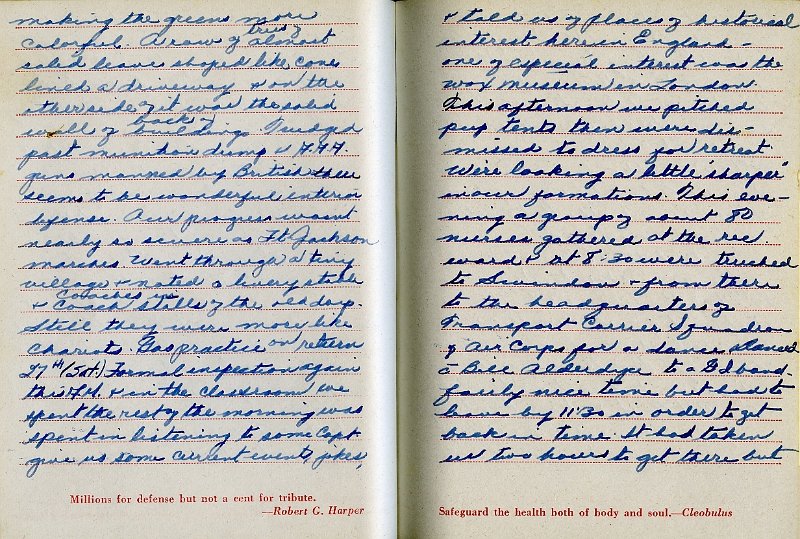 making the greens more
colorful. A row of trees of almost
solid leave shaped like cones
lined a driveway & on the
other side of it was the solid
wall of back of buildings. Trudged
past munition dump &
guns manned by British there
seems to be wonderful interior
defense. Our progress wasnt
nearly so severe as Ft Jackson
marches. Went through a tiny
village & noted a livery stable
& Coaches in stills of the old days.
Still they were more like
chariots. Gas practice on return
27th (Sat) Formal inspection again
this & in the classroom we
spent the rest of the morning was
spent in listening to some Capt
give us some current events, jokes,
Millions for defense but not a cent for tribute.
—Robert G. Harper
& told us of places of historical
interest here in England –
one of especial interest was the
wax museum in London.
This afternoon we pitched
pup tents then were dis-
missed to dress for retreat
We're looking a little 'sharper'
in our formations. This eve-
ning a group of about 80
nurses gathered at the rec.
ward & at 8:30 were trucked
to Swindon & from there
to the headquarters of
Transport Carrier Squadron
of Air Corps for a dance. Danced
c̄ Bill to a GI band.
fairly nice time but had to
leave by 11:30 in order to get
back in time. It had taken
us two hours to get there but
Safeguard the health both of body and soul.—Cleobulus